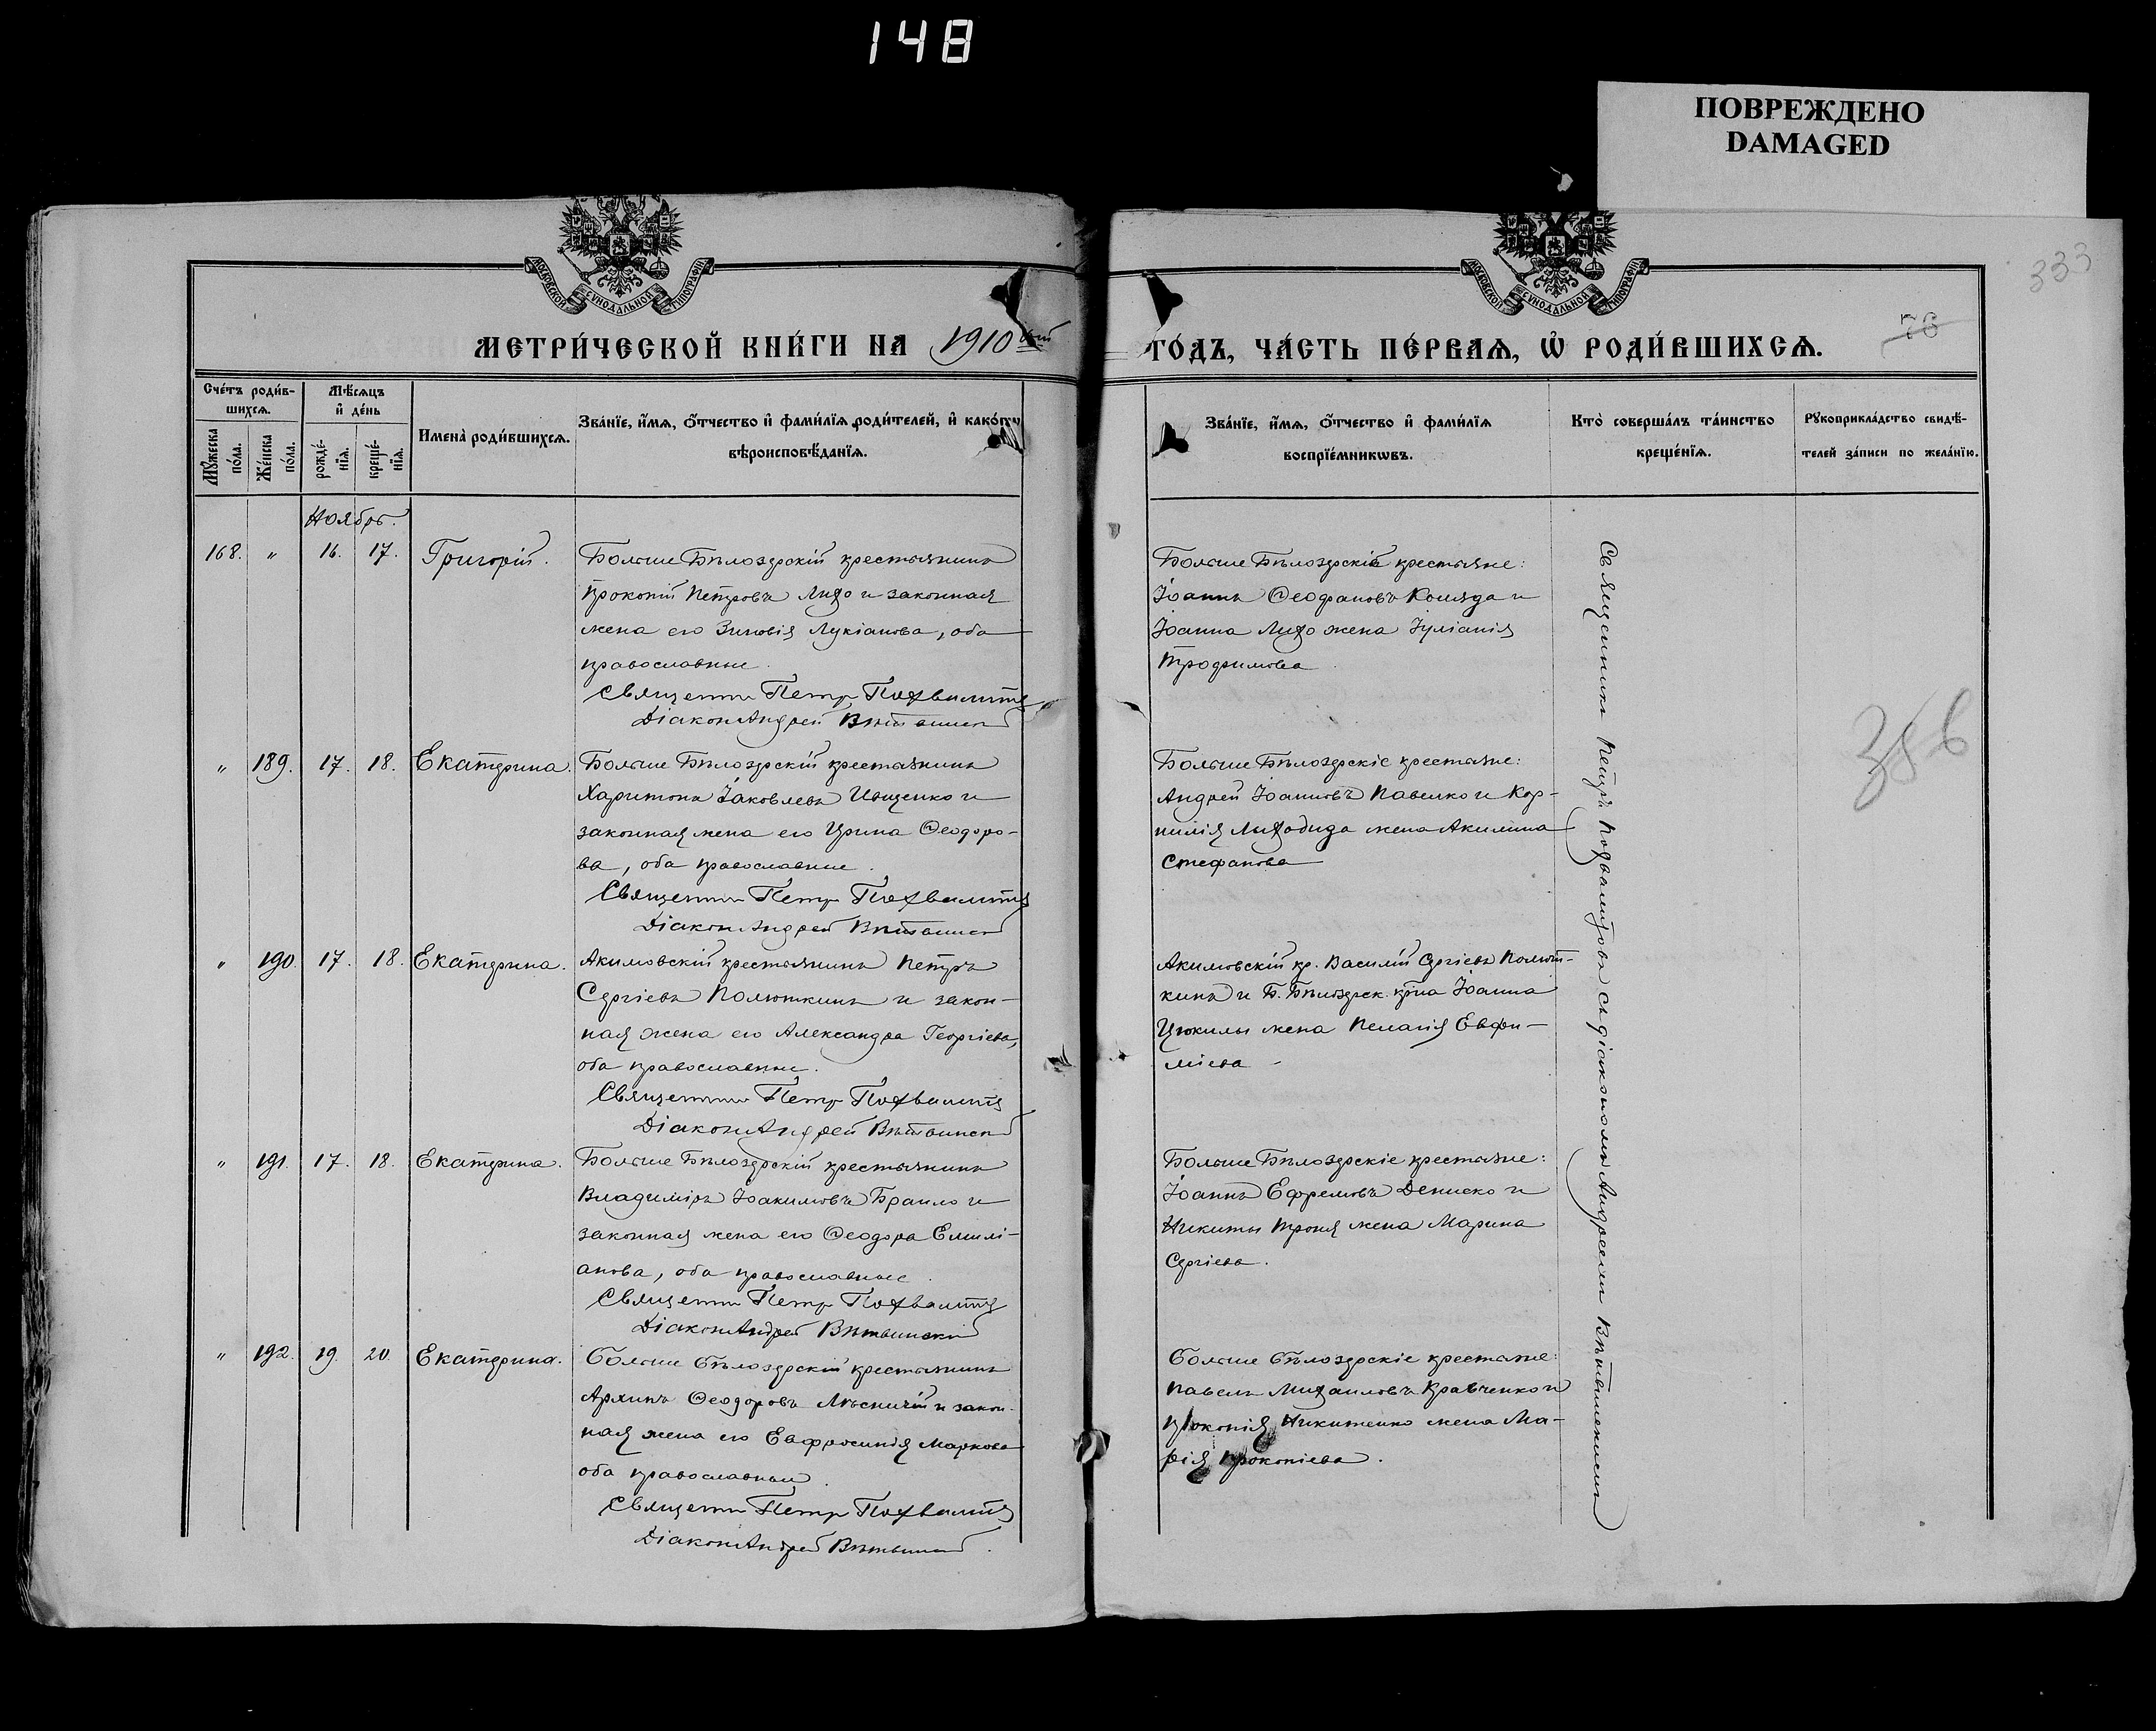 148
ПОВРЕЖДЕНО
DAMAGED
333
МОСКОВСКОЙ СѴНОДАЛЬНОЙ ТИПОГРАФІИ
МОСКОВСКОЙ СѴНОДАЛЬНОЙ ТИПОГРАФІИ
76
МЕТРИ́ЧЕСКОЙ КНИ́ГИ НА 1910 ый
ГО́ДЪ, ЧА́СТЬ ПЕ́РВАѦ, Ѡ҆ РОДИ́ВШИХСѦ.
Сче́тъ роди́в-
шихсѧ.
Мꙋ́жеска по́ла.
Же́нска по́ла.
Мѣ́сѧцъ
и҆ де́нь
рожде́-
нїѧ.
креще́-
нїѧ.
Имена̀ роди́вшихсѧ.
Зва́нїе, и҆́мѧ, ѻ҆́тчество и҆ фами́лїѧ роди́телей, и҆ како́гѡ
вѣроисповѣ́данїѧ.
Зва́нїе, и҆́мѧ, ѻ҆́тчество и҆ фами́лїѧ
воспрїе́мникѡвъ.
Кто̀ соверша́лъ та́инство
креще́нїѧ.
Рꙋкоприкла́дство свидѣ́-
телей за́писи по жела́нїю.
Ноябрь.
168. " 16. 17. Григорій.
Больше Бѣлозерскій крестьянинъ
Прокопій Петровъ Лихо и законная
жена его Зиновія Лукіанова, оба
православные.
Священник Петр Похвалитъ
Діакон Андрей Вѣтвинскій
Больше Бѣлозерскіе крестьяне:
Іоаннъ Ѳеофановъ Коляда и
Іоанна Лихо жена Іуліанія
Трофимова
" 189. 17. 18. Екатерина.
Больше Бѣлозерскій крестьянинъ
Харитонъ Іаковлевъ Ищенко и
законная жена его Ирина Ѳеодоро-
ва, оба православные.
Священник Петр Похвалитъ
Діакон Андрей Вѣтвинскій
Больше Бѣлозерскіе крестьяне:
Андрей Іоанновъ Павелко и Кор-
нилія Лиходида жена Акилина
Стефанова
" 190. 17. 18. Екатерина.
Акимовскій крестьянинъ Петръ
Сергіевъ Полюткинъ и закон-
ная жена его Александра Георгіева,
оба православные.
Священник Петр Похвалитъ
Діакон Андрей Вѣтвинскій
Акимовскій кр. Василій Сергіевъ Полют-
кинъ и Б. Бѣлозерск. кр-на Іоанна
Цюкилы жена Пелагія Евфи-
міева
" 191. 17. 18. Екатерина.
Больше Бѣлозерскій крестьянинъ
Владиміръ Іоакимовъ Браило и
законная жена его Ѳеодора Емилі-
анова, оба православные.
Священник Петр Похвалитъ
Діакон Андрей Вѣтвинскій
Больше Бѣлозерскіе крестьяне:
Іоаннъ Ефремовъ Дениско и
Никиты Троня жена Марина
Сергіева.
" 192. 19. 20. Екатерина.
Больше Бѣлозерскій крестьянинъ
Архипъ Ѳеодоровъ Лѣсничій и закон-
ная жена его Евфросинія Маркова
оба православные.
Священник Петр Похвалитъ
Діакон Андрей Вѣтвинскій.
Больше Бѣлозерскіе крестьяне:
Павелъ Михаиловъ Кравченко и
Прокопія Никитенко жена Ма-
рія Прокопіева.
Священникъ Петръ Похвалитовъ съ діакономъ Андреемъ Вѣтвинскимъ